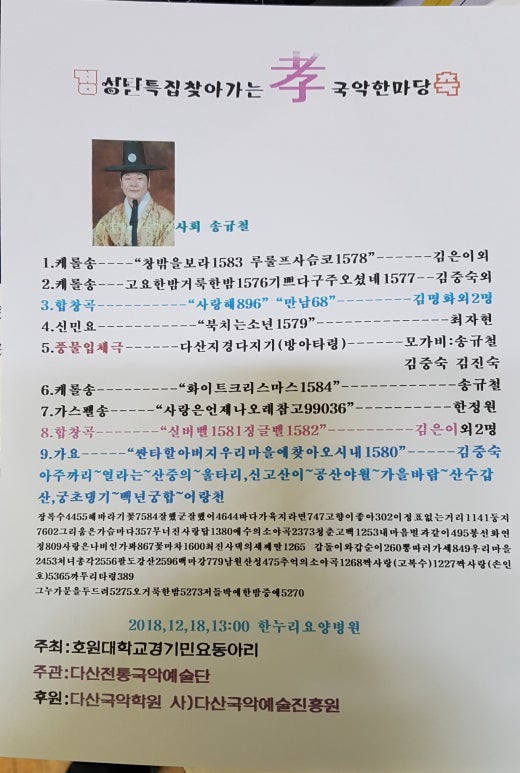 경 상담특집찾아가는 孝 국악한마당 축
사회 송규철
1.케롤송----“창밖을보라1583 루돌프사슴코1578”-------김은이외
2.케롤송---고요한밤거룩한밤1576기쁘다구주오셨네1577--김중숙외
3.합창곡----------“사랑해896” “만남68”----------김명화외2명
4.신민요-----------“북치는소년1579”-----------------최자현
5.풍물입체극-------다산지경다지기(방아타령)-------모가비:송규철
김중숙 김진숙
6.케롤송---------“화이트크리스마스1584”--------------송규철
7.가스펠송-----“사랑은언제나오래참고99036”----------한정원
8.합창곡-------“실버벨1581징글벨1582”-----------김은이외2명
9.가요-----“싼타할아버지우리마을에찾아오시네1580”------김중숙
아주까리~열라는~산중의~울타리,신고산이~공산야월~가을바람~산수갑
산,궁초댕기~백년궁합~어랑천
장록수4455해바라기꽃7584잘했군잘했어4644바다가육지라면747고향이좋아302이정표없는거리1141둥지
7602그리움은가슴마다357무너진사랑탑1380애수의소야곡2373청춘고백1253내마음별과같이495봉선화연
정809사랑은나비인가봐867꽃마차1600최진사댁의셋째딸1265 갑돌이와갑순이260뽕따러가세849우리마을
2453처녀총각2556팔도강산2596백마강779남원산성475추억의소야곡1268짝사랑(고복수)1227짝사랑(손인
호)5365까투리타령389
그누가문을두드려5275오거룩한밤5273저들밖에한밤중에5270
2018,12,18,13:00 한누리요양병원
주최:호원대학교경기민요동아리
주관:다산전통국악예술단
후원:다산국악학원 사)다산국악예술진흥원